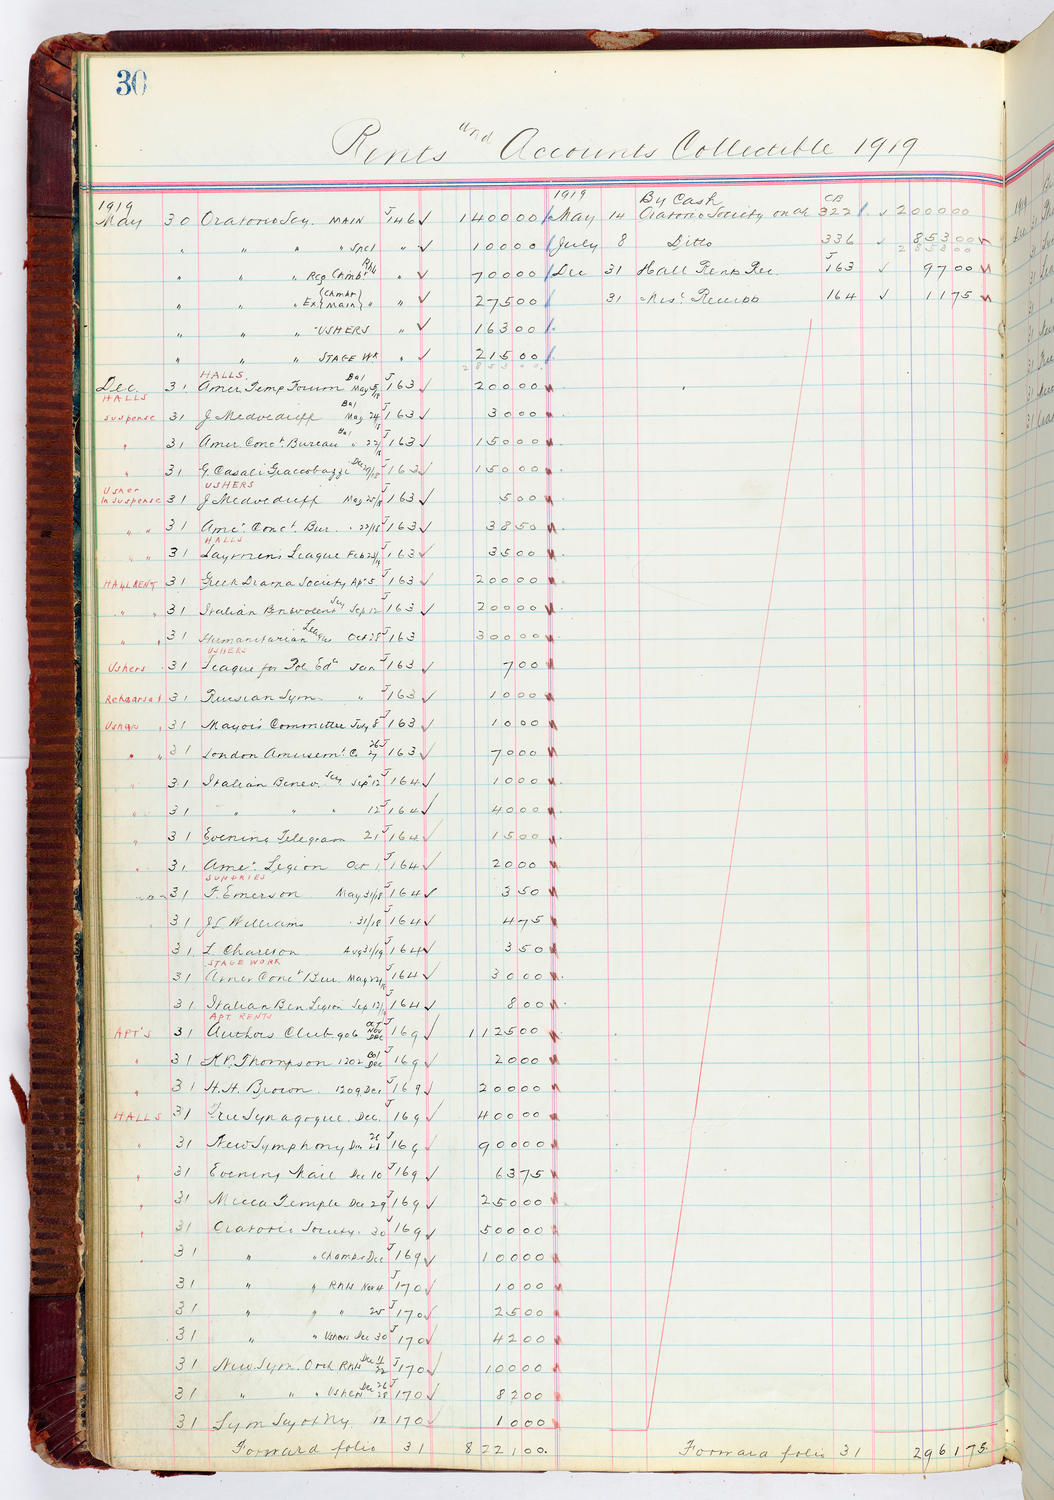 30
Rents and Accounts Collectible 1919
1919 1919 By Cash CB
May 30 Oratorio Socy. MAIN J 146 ✓ 1400 00 May 14 Oratorio Society on a/c 322 ✓ 2000 00
" " " " Spcl " ✓ 100 00 July 8 Ditto 336 ✓ 853 00
2853 00
" " " Reg Chmbr Rhl " ✓ 700 00 Dec 31 Hall Rents Rec. J 163 ✓ 97 00
" " " Ex {Chmbr Main} " " ✓ 275 00 31 Misc. Receipts 164 ✓ 11 75
" " " USHERS " ✓ 163 00
" " " STAGE WK " ✓ 215 00
2853 00
HALLS
Dec. 31 Amer. Temp Forum Bal May 5/19 J 163 ✓ 200 00
HALLS
Suspense 31 J Medvedieff Bal May 24/18 J 163 ✓ 30 00
" 31 Amer Conct. Bureau Bal " 22/18 J 163 ✓ 150 00
" 31 G. Casali Giaccobazzi Dec 29/18 J 163 ✓ 150 00
USHERS
Usher In Suspense 31 J Medvedieff May 25/18 J 163 ✓ 5 00
" " 31 Amer. Conct. Bur. " 22/18 J 163 ✓ 38 50
HALLS
" " 31 Laymen's League Feb 23/19 J 163 ✓ 35 00
HALL RENT 31 Greek Drama Society Apr 5 J 163 ✓ 200 00
" " 31 Italian Benevolent Socy Sep 12 J 163 ✓ 200 00
" " 31 Humanitarian League Oct 28 J 163 300 00
USHERS
Ushers 31 League for Pol Edn Jan J 163 ✓ 7 00
Rehearsal 31 Russian Sym. " J 163 ✓ 10 00
Ushers 31 Mayor's Committee July 8 J 163 ✓ 10 00
" " 31 London Amusemt. Co 26 27 J 163 ✓ 70 00
" 31 Italian Benev. Socy Sep 12 J 164 ✓ 10 00
31 " " " 12 J 164 ✓ 40 00
" 31 Evening Telegram 21 J 164 ✓ 15 00
" 31. Amer. Legion Oct 1 J 164 ✓ 20 00
SUNDRIES
31 F. Emerson May 31/18 J 164 ✓ 3 50
31 J L Williams " 31/18 J 164 ✓ 4 75
31. L. Charlton Aug 31/19 J 164 ✓ 3 50
STAGE WORK
31 Amer Conct Bur. May 22/18 J 164 ✓ 30 00
31. Italian Ben. Legion Sep 12/19 J 164 ✓ 8 00
APT. RENTS
APT'S 31 Authors Club 906 OCT NOV DEC J 169 ✓ 1125 00
" 31 K.P. Thompson 1202 Bal Dec J 169 ✓ 20 00
" 31 H. H. Brown. 1209 Dec J 169 ✓ 200 00
HALLS 31 Free Synagogue. Dec. J 169 ✓ 400 00
" 31 New Symphony Dec J 169 ✓ 900 00
" 31 Evening Mail Dec 10 J 169 ✓ 63 75
" 31 Mecca Temple Dec 29 J 169 ✓ 250 00
" 31 Oratorio Society. 30 J 169 ✓ 500 00
" 31 " " Chamber Dec J 169 ✓ 100 00
31 " " Rhls Nov 4 J 170 ✓ 10 00
31 " " " 25 J 170 ✓ 25 00
31 " " Ushers Dec 30 J 170 ✓ 42 00
31 New Sym. Orch Rhls Dec 11 22 J 170 ✓ 100 00
31 " " " Ushers Dec 26 28 J 170 ✓ 82 00
31 Sym Socy of Ny 12 170 ✓ 10 00
Forward folio 31 8221 00. Forward folio 31 2961 75.